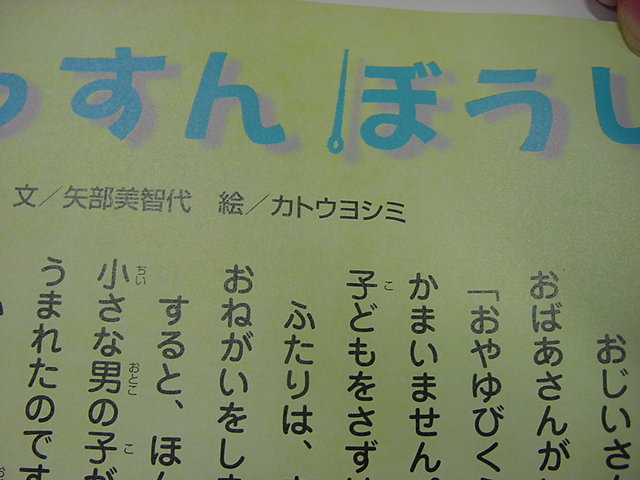 っすんぼうし
文／矢部美智代 絵／カトウヨシミ
おじいさ
おばあさんが
「おやゆびくら
かまいません。
子どもをさず
こ
ふたりは、
おねがいをしま
すると、ほん
小さな男の子が
ちい
おとこ
こ
うまれたのです